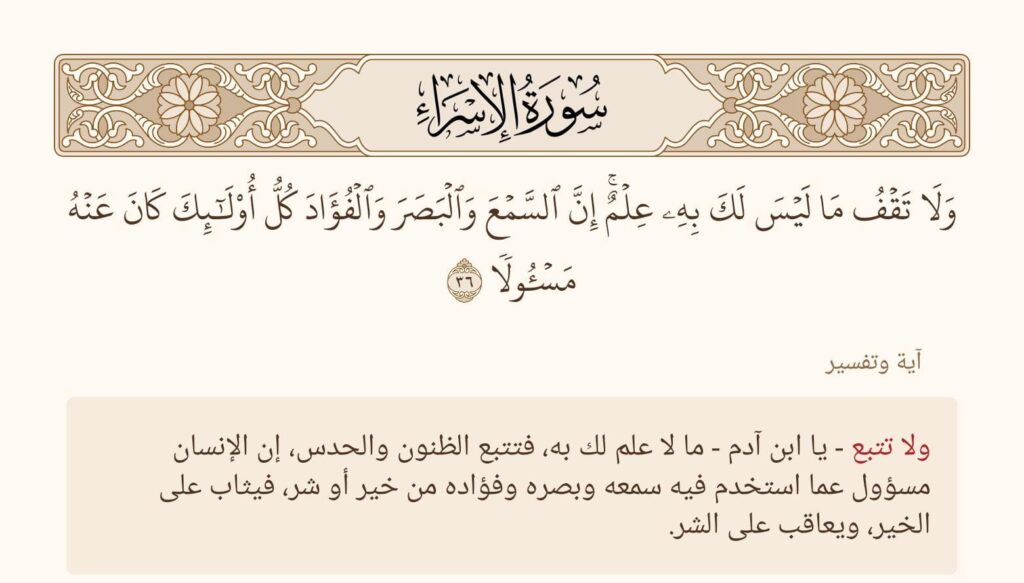 سُورَةُ الإِسْرَاءِ
وَلَا تَقۡفُ مَا لَيۡسَ لَكَ بِهِۦ عِلۡمٌۚ إِنَّ ٱلسَّمۡعَ وَٱلۡبَصَرَ وَٱلۡفُؤَادَ كُلُّ أُوْلَٰٓئِكَ كَانَ عَنۡهُ
مَسۡـُٔولٗا ٣٦
آية وتفسير
ولا تتبع - يا ابن آدم - ما لا علم لك به، فتتبع الظنون والحدس، إن الإنسان
مسؤول عما استخدم فيه سمعه وبصره وفؤاده من خير أو شر، فيثاب على
الخير، ويعاقب على الشر.